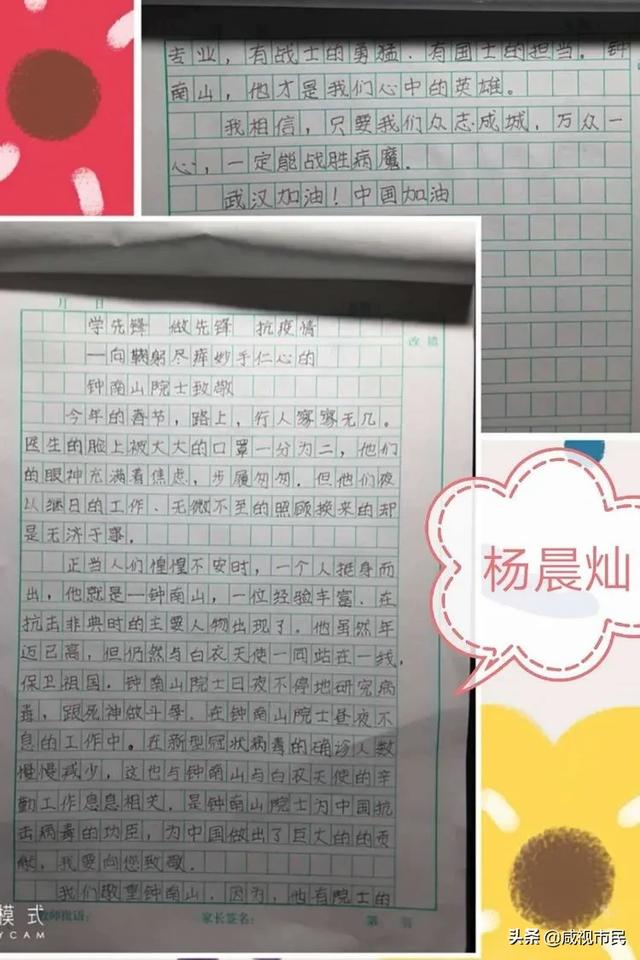 月 日
学先锋 做先锋 抗疫情
—向鞠躬尽瘁妙手仁心的
钟南山院士致敬
今年的春节，路上，行人寥寥无几。
医生的脸上被大大的口罩一分为二，他们
的眼神充满着焦虑，步履匆匆。但他们夜
以继日的工作、无微不至的照顾换来的却
是无济于事。
正当人们惶惶不安时，一个人挺身而
出，他就是—钟南山，一位经验丰富、在
抗击非典时的主要人物出现了。他虽然年
迈已高，但仍然与白衣天使一同站在一线，
保卫祖国。钟南山院士日夜不停地研究病
毒，跟死神做斗争。在钟南山院士昼夜不
息的工作中。在新型冠状病毒的确诊人数
慢慢减少，这也与钟南山与白衣天使的辛
勤工作息息相关，是钟南山院士为中国抗
击病毒的功臣，为中国做出了巨大的的贡
献，我要向您致敬。
我们敬重钟南山，因为，他有院士的
教师批语： 家长签名： 第 页
改错
专业，有战士的勇猛、有国士的担当。钟
南山，他才是我们心中的英雄。
我相信，只要我们众志成城，万众一
心，一定能战胜病魔。
武汉加油！中国加油
杨晨灿
模式
YCAM
头条 @咸视市民